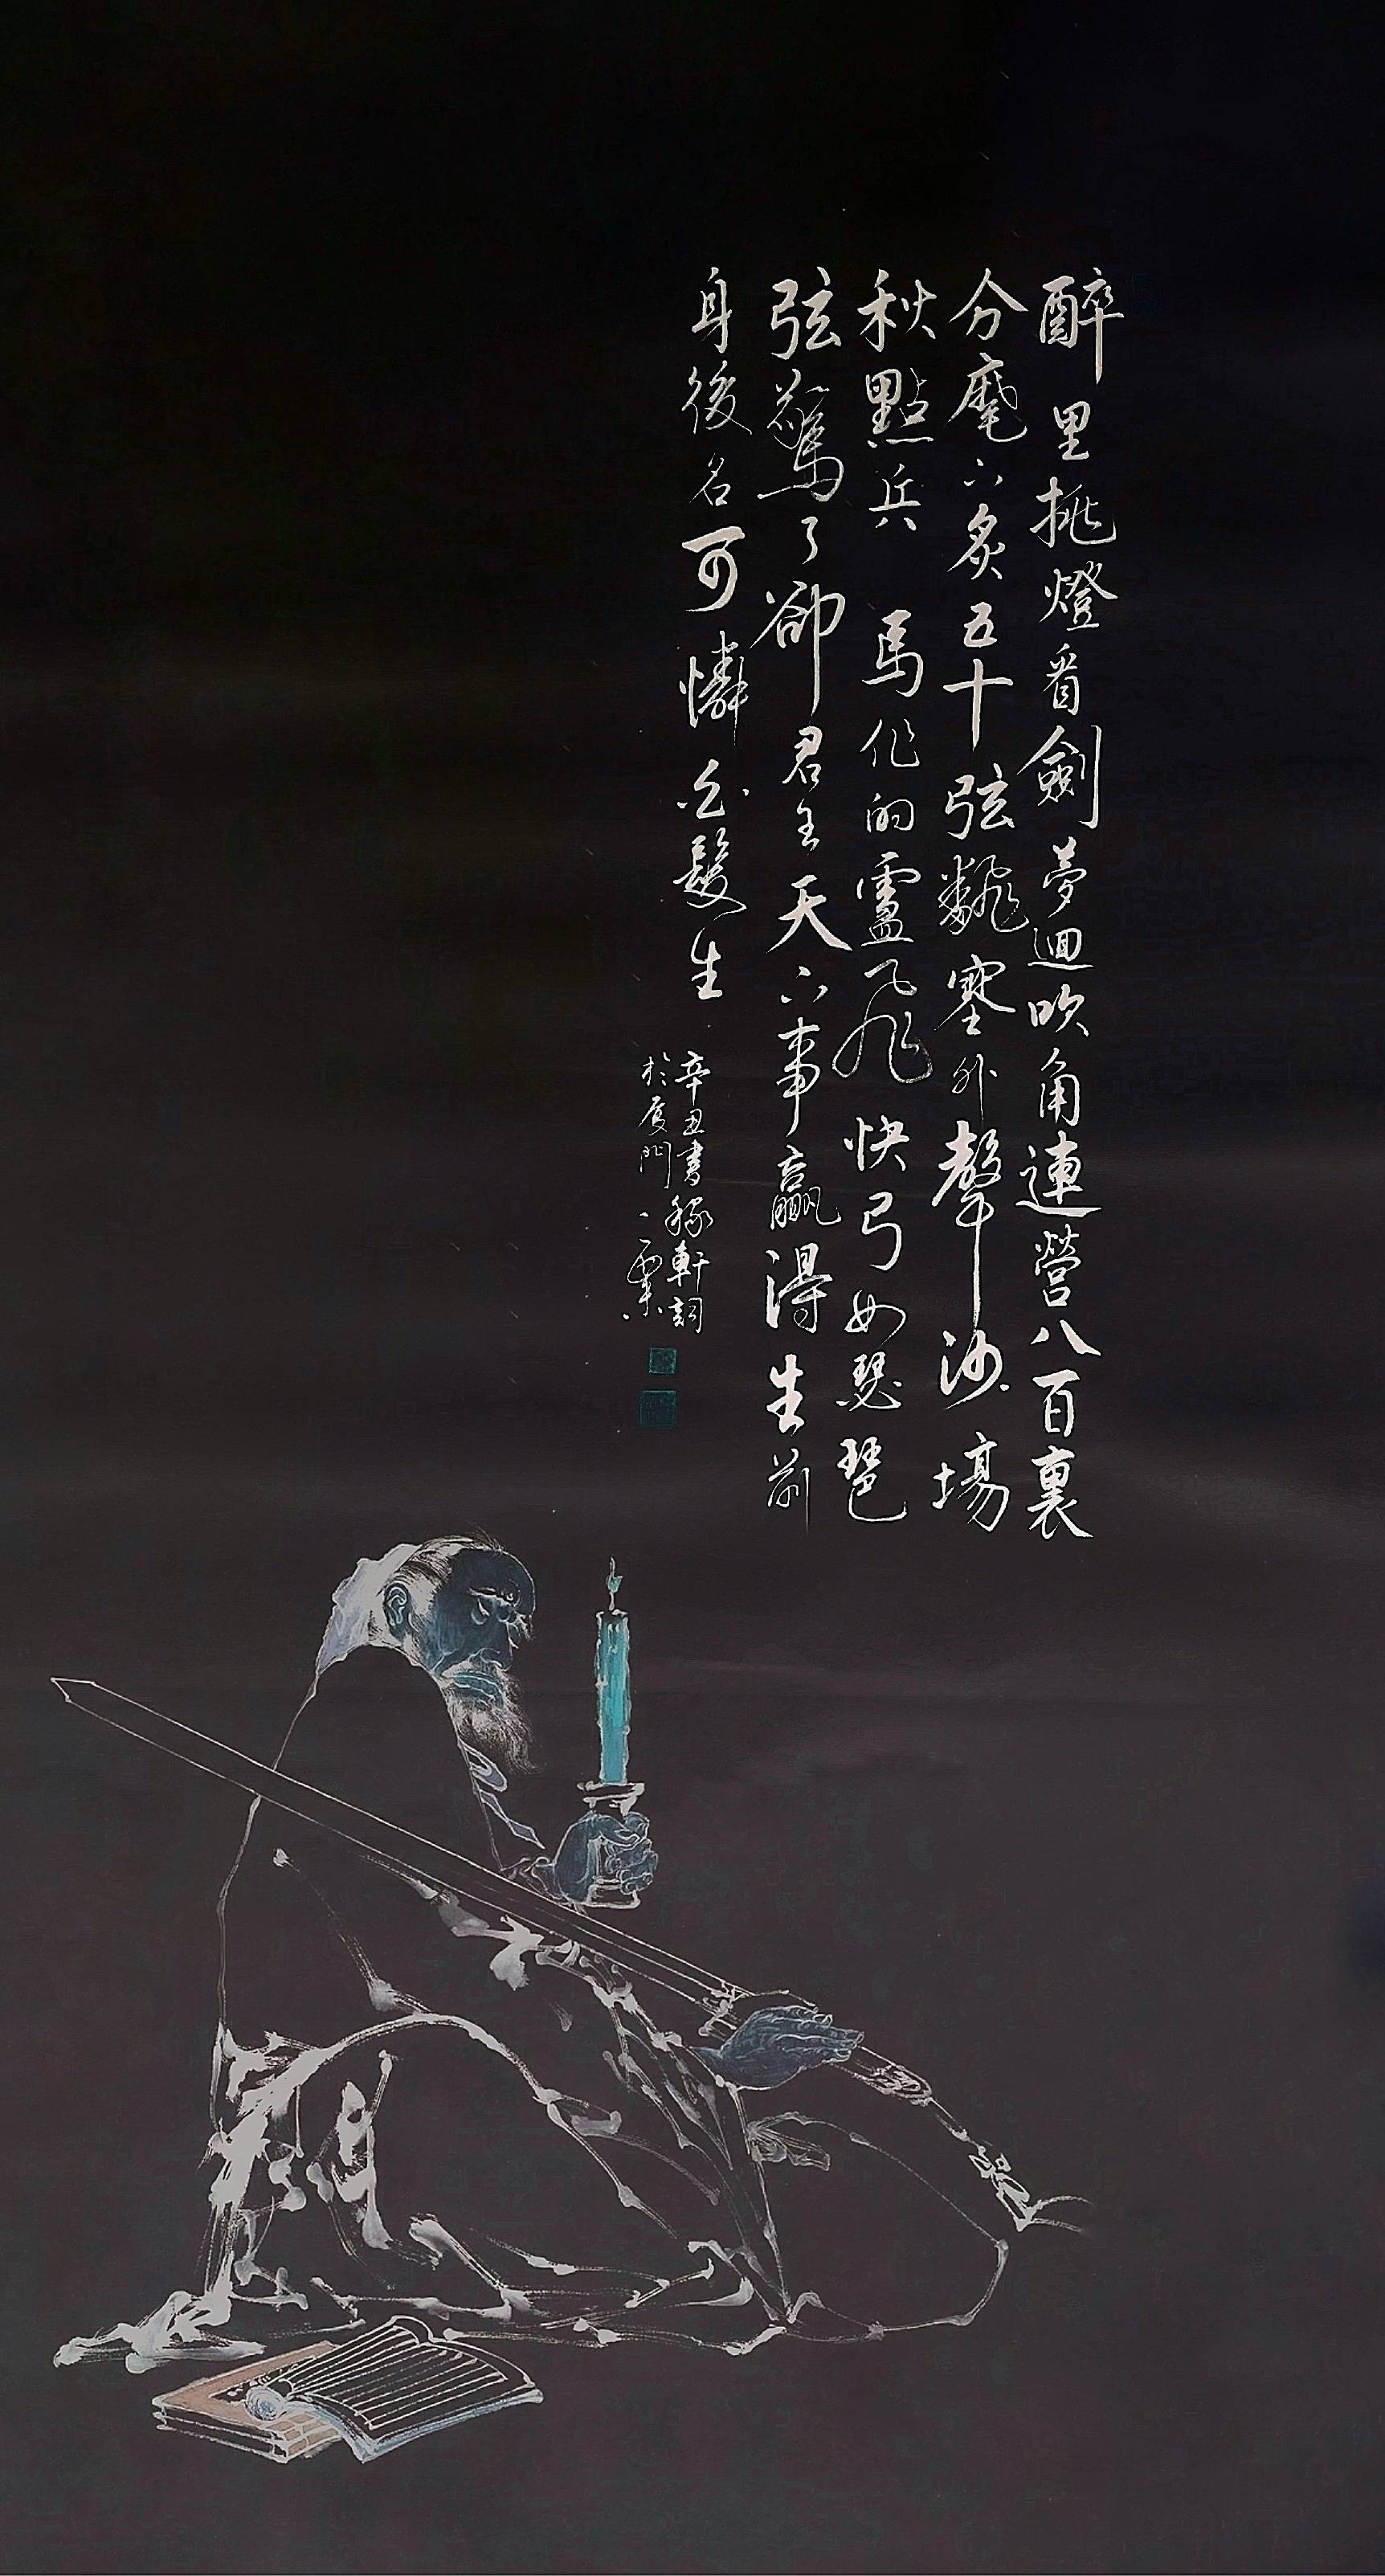 醉里挑燈看劍夢迴吹角連營八百裏
分麾下炙五十弦飜塞外聲沙場
秋點兵 馬作的盧飛快弓如瑟琶
弦驚了卻君王天下事贏得生前
身後名可憐白髮生
辛丑書稼軒詞
於厦門一粟